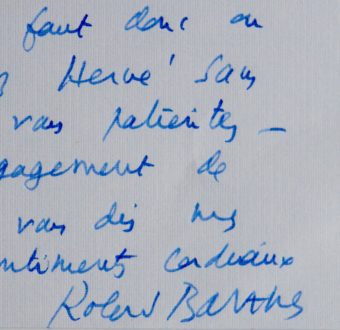 faut donc on
Hervé sans
vous patientez –
gagement de
vous dis mes
ntiments cordiaux
Roland Barthes